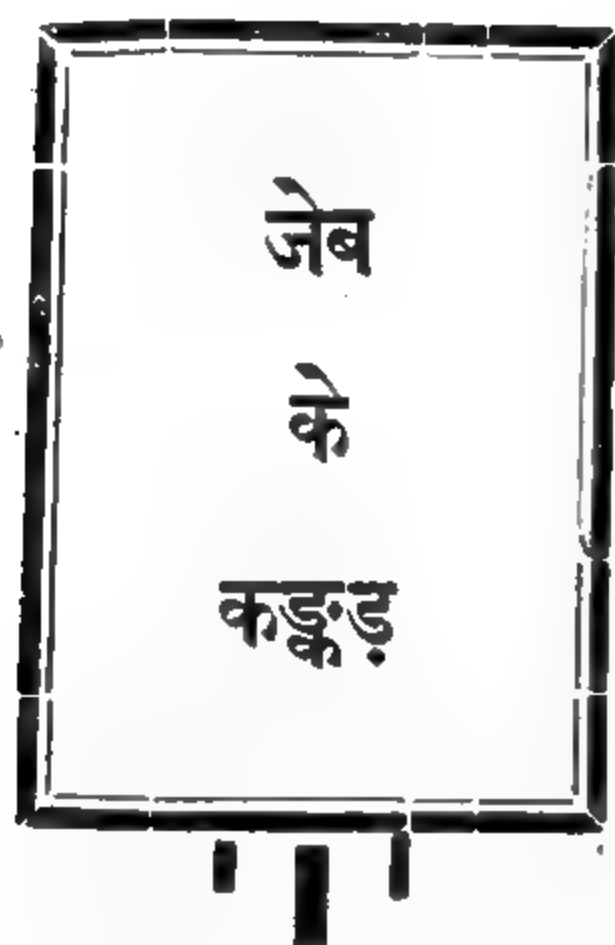 जेब
के
कङ्कड़